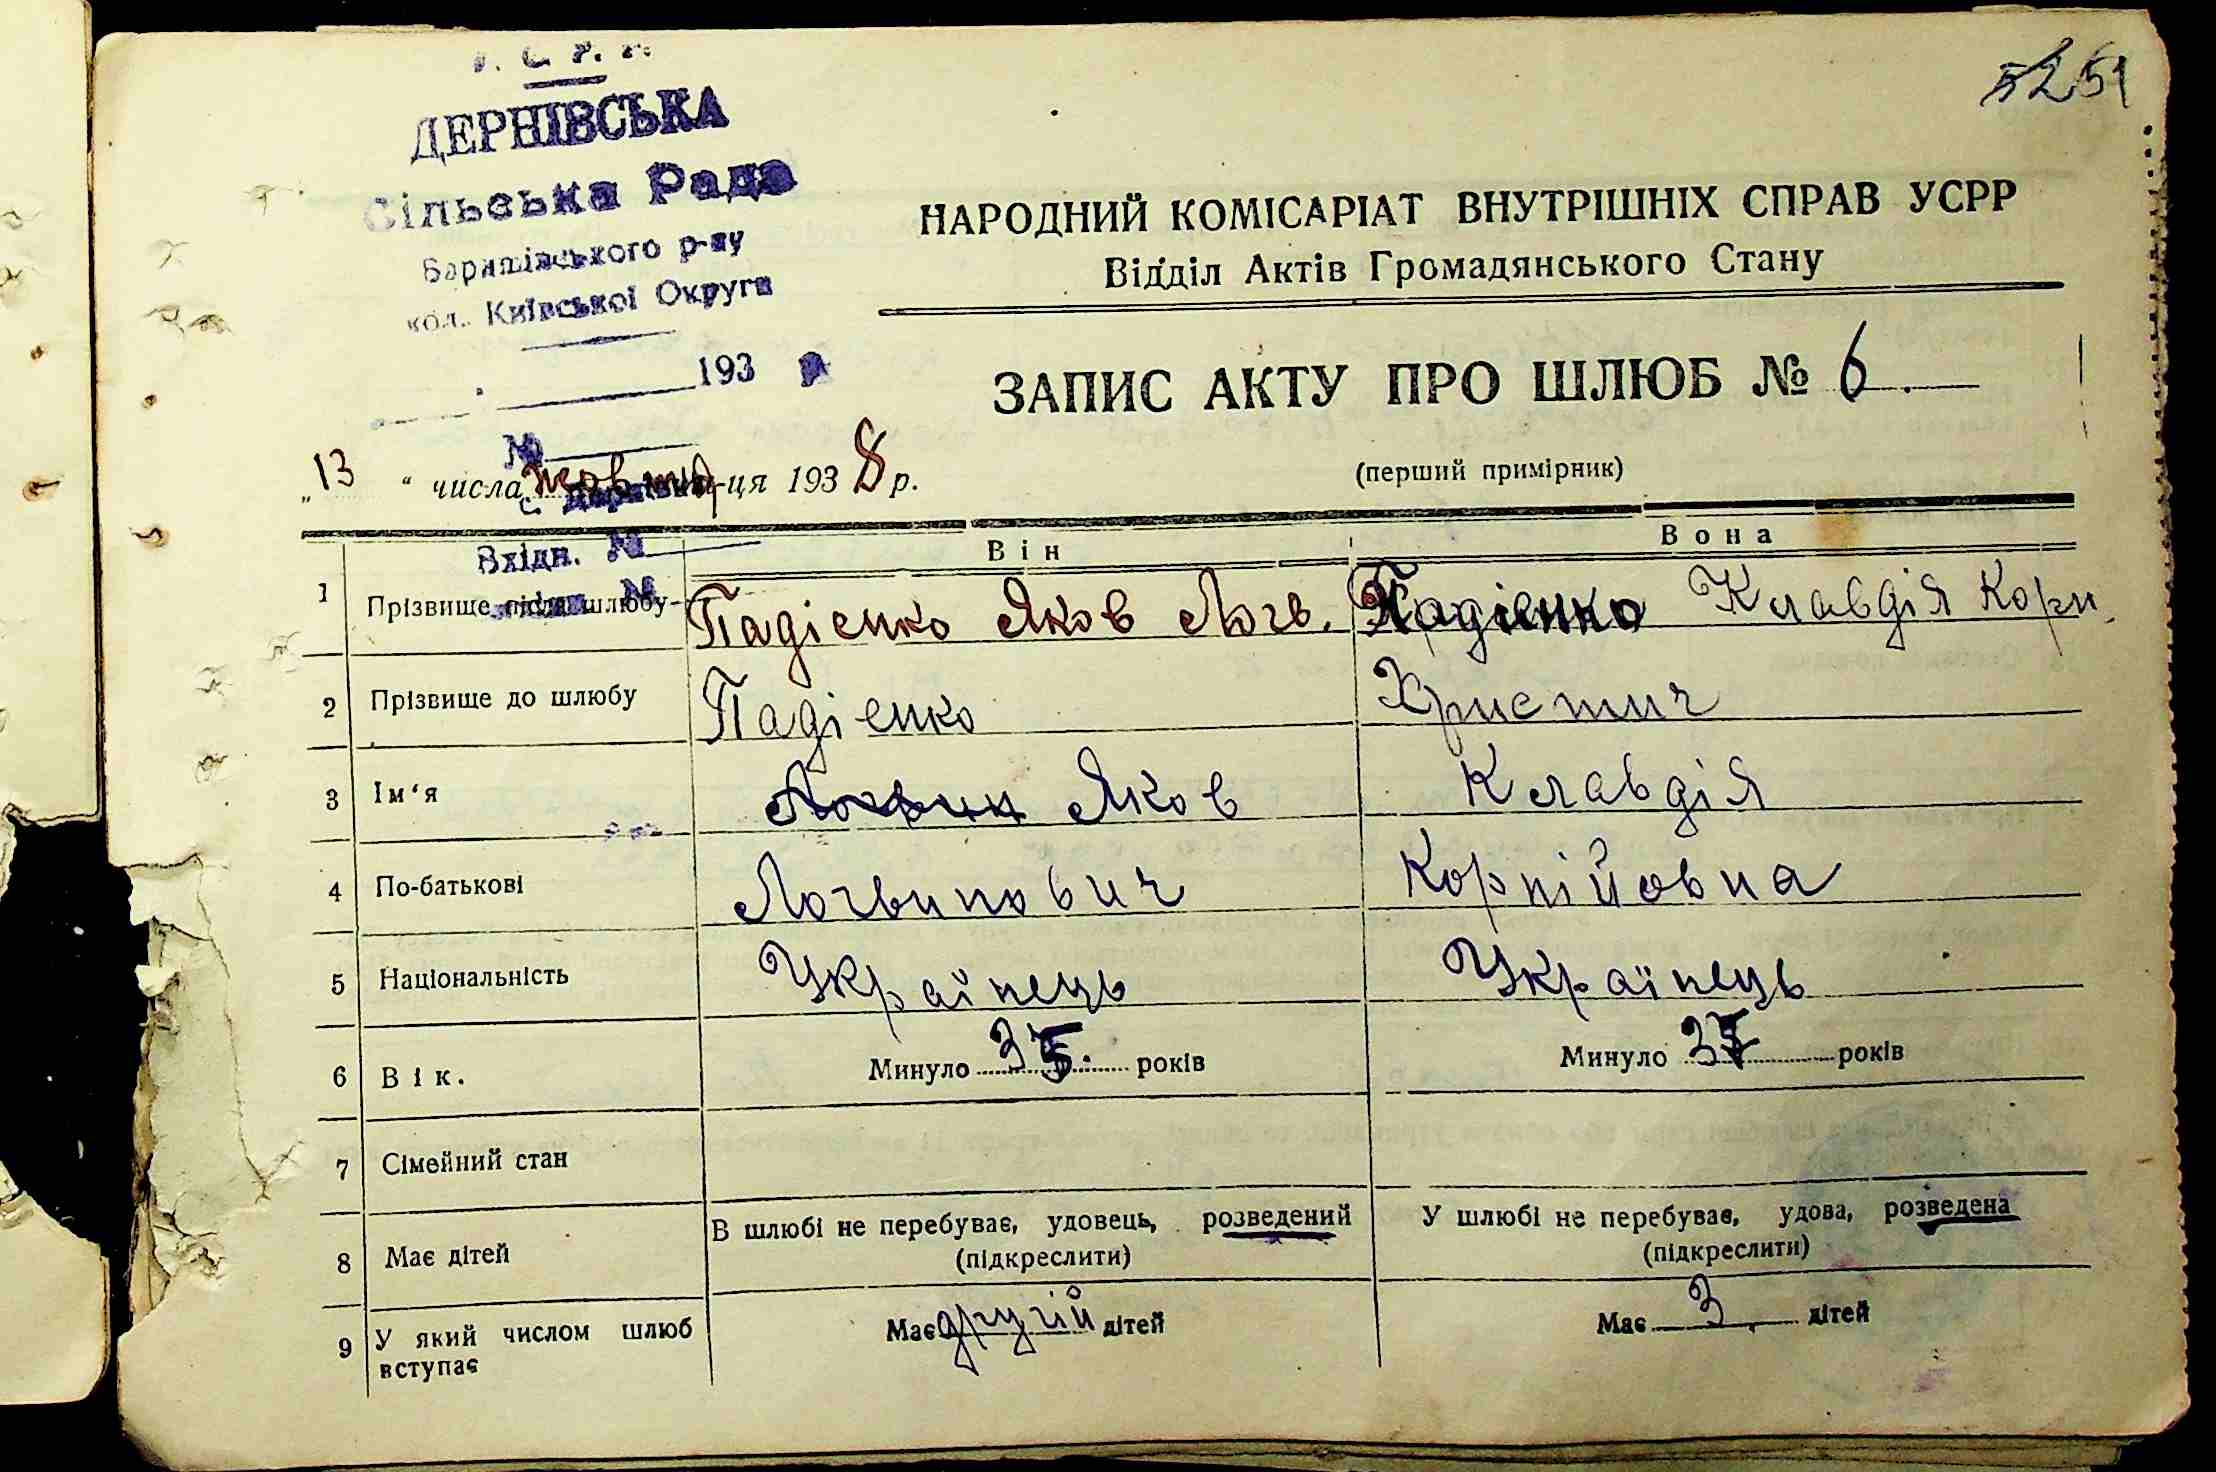 52 51
ДЕРНІВСЬКА
Сільська Рада
Баришівського р-ну
кол. Київської Округи
193 р
№
с. Дернівка
Вхідн. №
№
НАРОДНИЙ КОМІСАРІАТ ВНУТРІШНІХ СПРАВ УСРР
Відділ Актів Громадянського Стану
ЗАПИС АКТУ ПРО ШЛЮБ № 6
(перший примірник)
„13“ числа жовтня -ця 1938 р.
Він Вона
1 Прізвище після шлюбу Падієнко Яков Логв. Падієнко Клавдія Корн.
2 Прізвище до шлюбу Падієнко Христич
3 Ім‘я Логвин Яков Клавдія
4 По-батькові Логвинович Корнійовна
5 Національність Українець Українець
6 Вік. Минуло 35 років Минуло 37 років
7 Сімейний стан
8 Має дітей В шлюбі не перебуває, удовець, розведений У шлюбі не перебуває, удова, розведена
(підкреслити) (підкреслити)
9 У який числом шлюб Має другій дітей Має 3 дітей
вступає